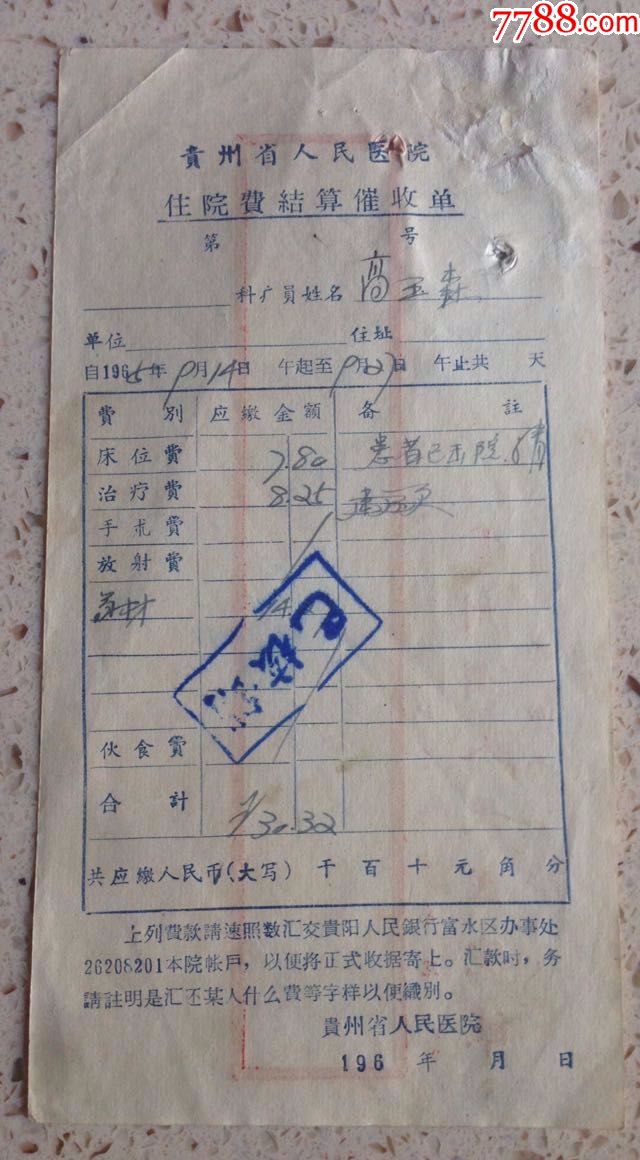 7788.com
中国收藏热线
貴州省人民医院
住院費結算催收单
第 号
科疒員姓名 高玉森
单位 住址
自1965年9月14日 午起至9月27日 午止共 天
費別 应缴金額 备註
床位費 7.80 患者已出院.请
治疗費 8.25
手朮費
放射費
14.
伙食費
合計 30.32
共应缴人民币(大写) 千百十元角分
上列費款請速照数汇交貴阳人民銀行富水区办事处
26208201本院帐戶，以便将正式收据寄上。汇款时，务
請註明是汇还某人什么費等字样以便識别。
貴州省人民医院
196 年 月 日